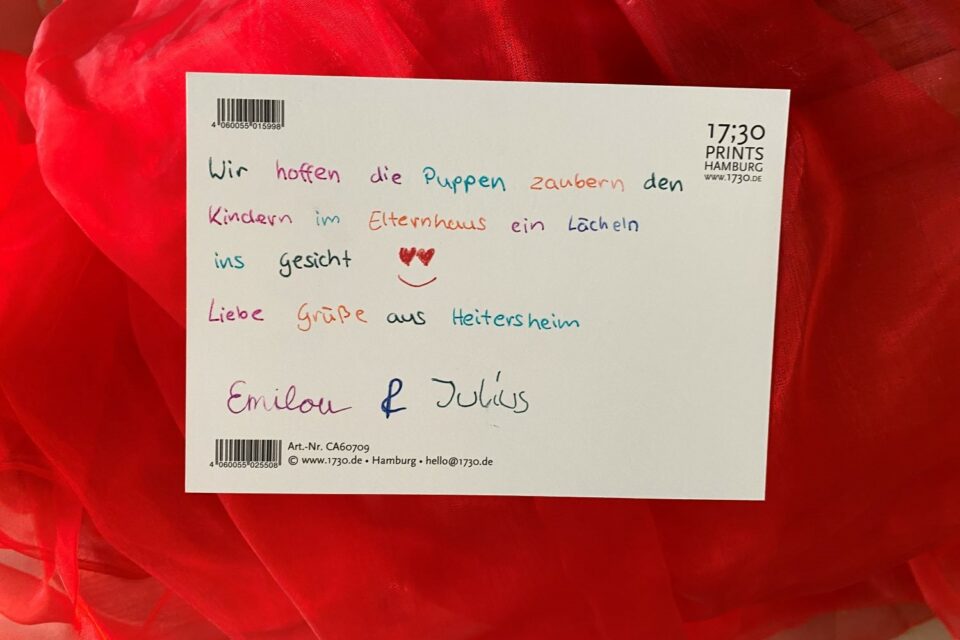 4 060055 015998
17;30
PRINTS
HAMBURG
WWW.1730.DE
Wir hoffen die Puppen zaubern den
Kindern im Elternhaus ein Lächeln
ins gesicht
Liebe Grüße aus Heitersheim
Emilou & Julius
4 060055 025508
Art.-Nr. CA60709
© www.1730.de • Hamburg • hello@1730.de